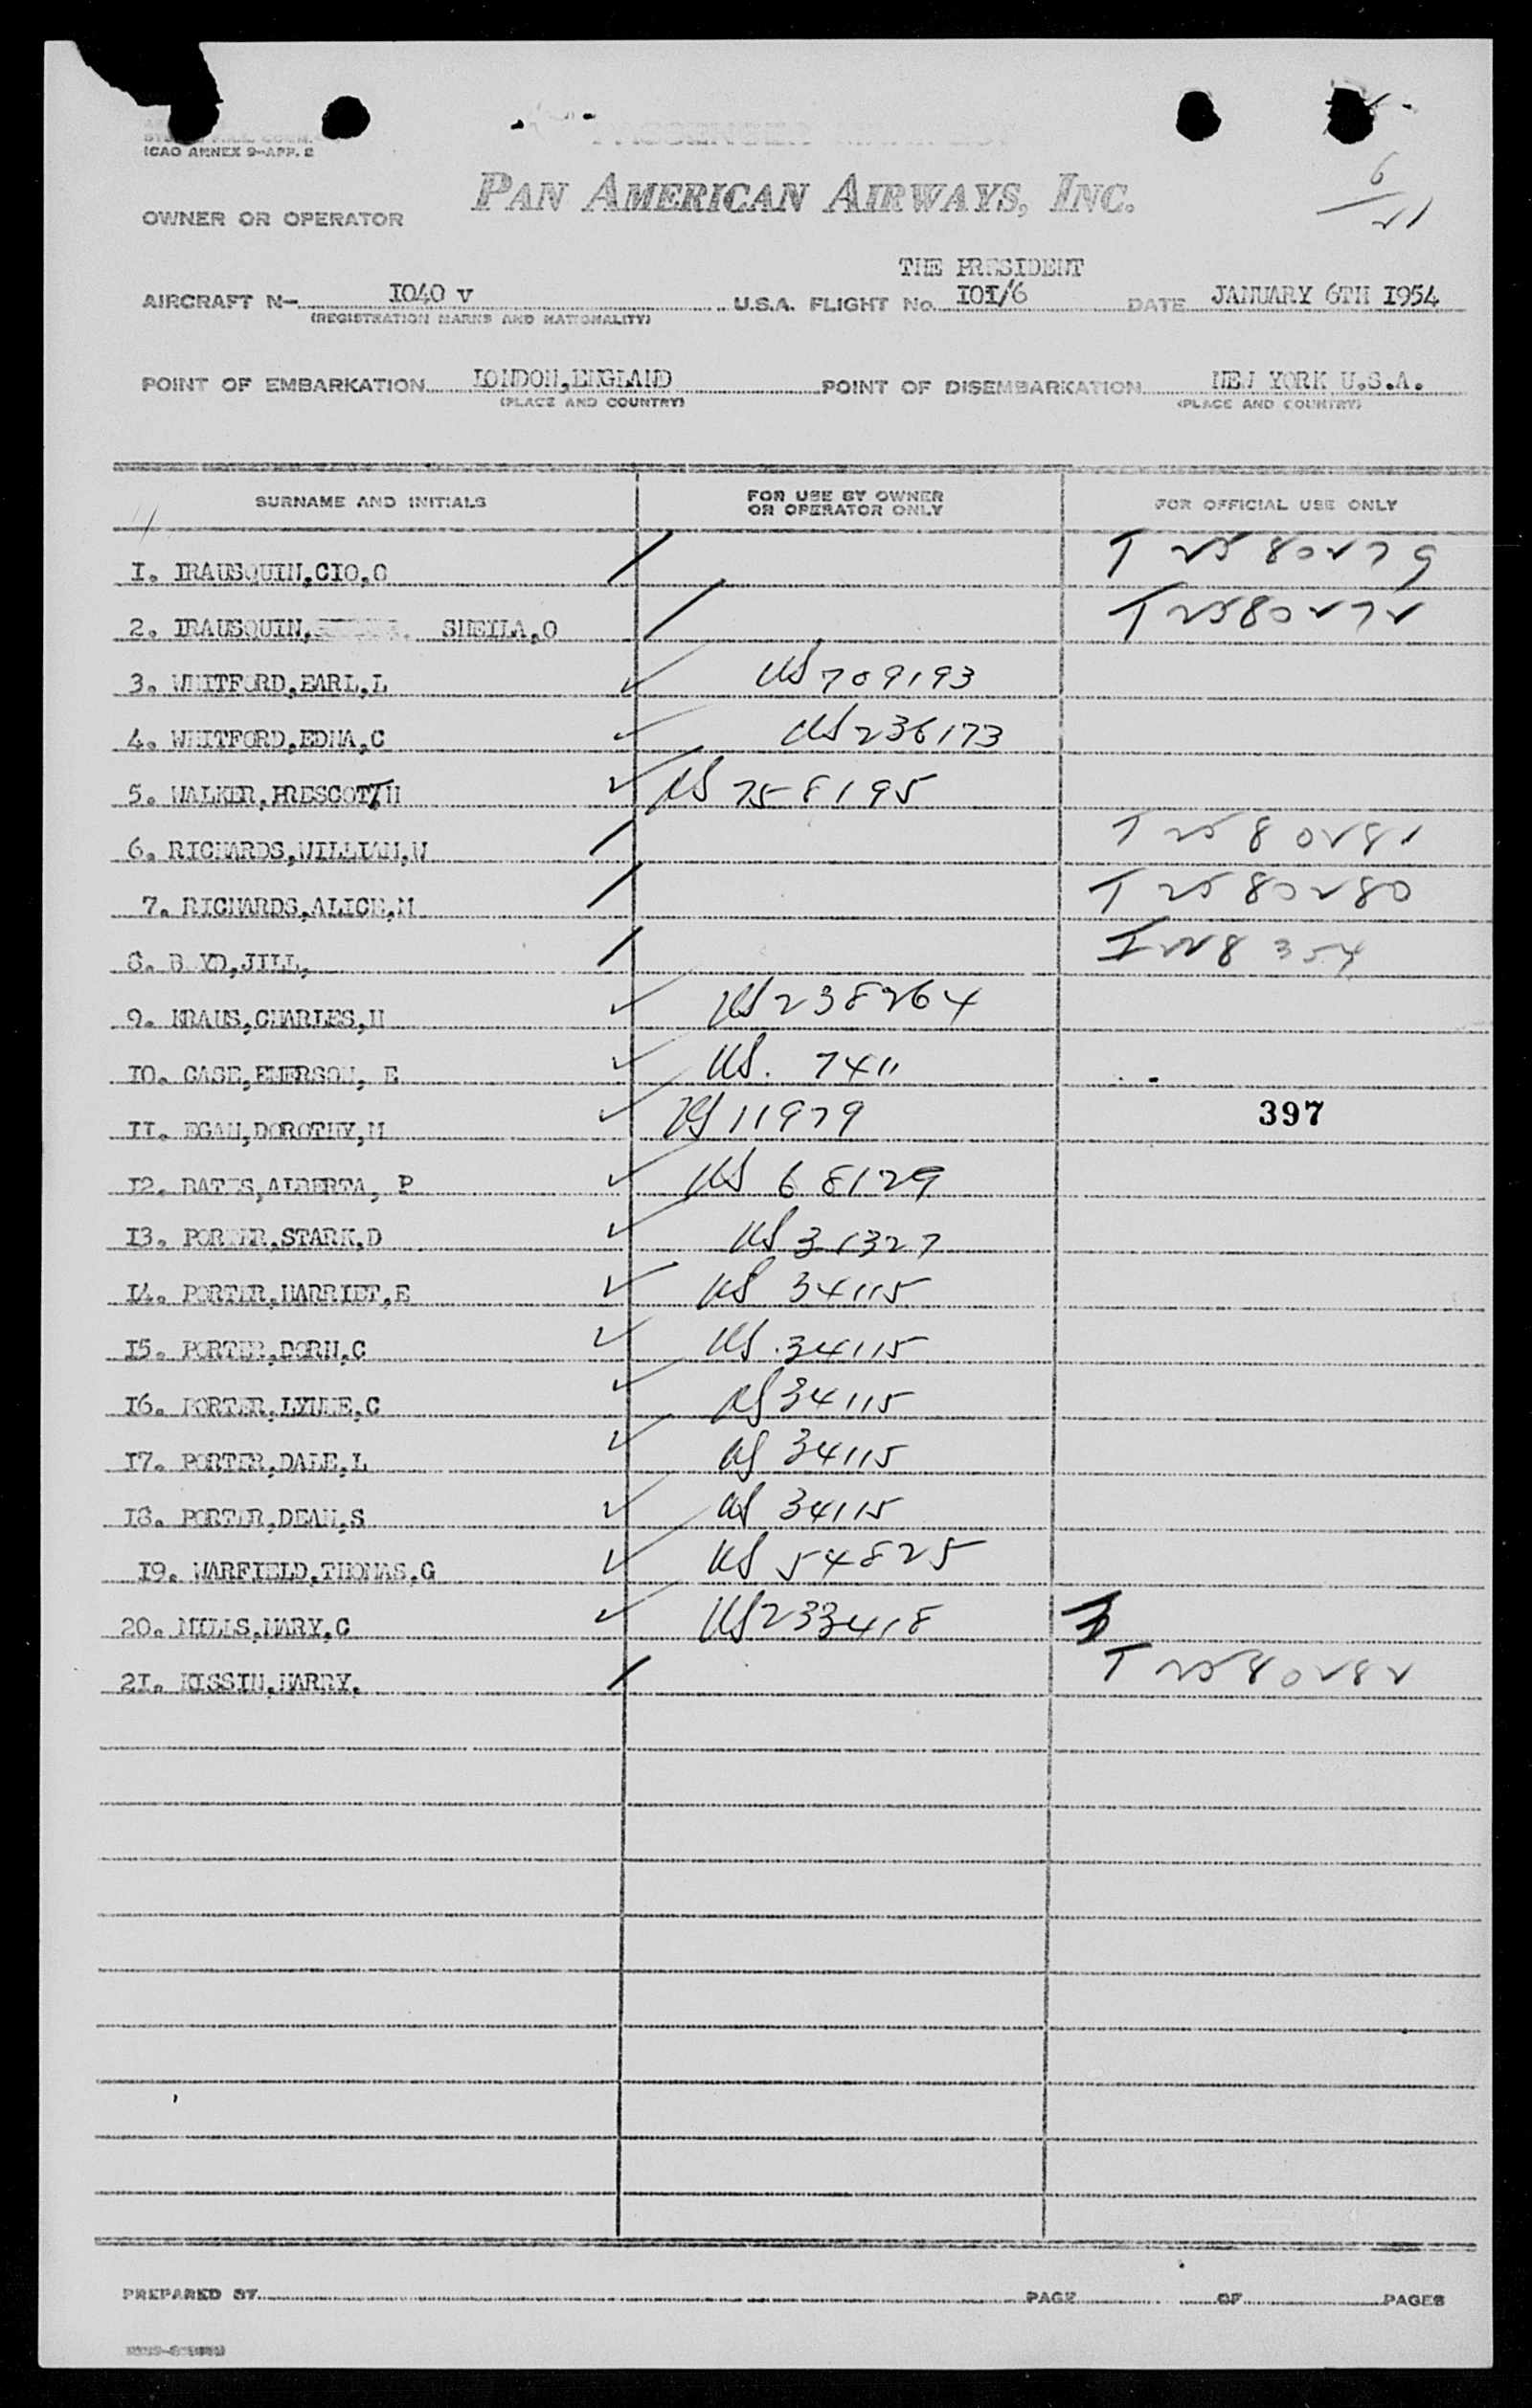 ICAO ANNEX 9-APP. 2
PAN AMERICAN AIRWAYS, INC.
OWNER OR OPERATOR
6
21
THE PRESIDENT
AIRCRAFT N- 1040 V U.S.A. FLIGHT No. 101/6 DATE JANUARY 6TH 1954
(REGISTRATION MARKS AND NATIONALITY)
POINT OF EMBARKATION LONDON,ENGLAND POINT OF DISEMBARKATION NEW YORK U.S.A.
(PLACE AND COUNTRY) (PLACE AND COUNTRY)
SURNAME AND INITIALS FOR USE BY OWNER OR OPERATOR ONLY FOR OFFICIAL USE ONLY
1. IRAUSQUIN,CIO,O T 2580279
2. IRAUSQUIN, SHEILA,O T 2580272
3. WHITFORD,EARL,L US 709193
4. WHITFORD,EDNA,C US 236173
5. WALKER,PRESCOTT,H US 758195
6. RICHARDS,WILLIAM,W T 2580281
7. RICHARDS,ALICE,M T 2580280
8. JILL, 228354
9. KRAUS,CHARLES,H US 238264
10. CASE,EMERSON, E US. 7411
11. EGAN,DOROTHY,M US 11979
12. BATES,ALBERTA, P US 68129
13. PORTER,STARK,D US 31327
14. PORTER,HARRIET,E US 34115
15. PORTER,DORN,C US.34115
16. PORTER,LYNNE,C US 34115
17. PORTER,DALE,L US 34115
18. PORTER,DEAN,S US 34115
19. WARFIELD,THOMAS,G US 54825
20. MILLS,MARY,C US 233418
21. KISSIN,HARRY. T 2580282
397
PREPARED BY PAGE OF PAGES